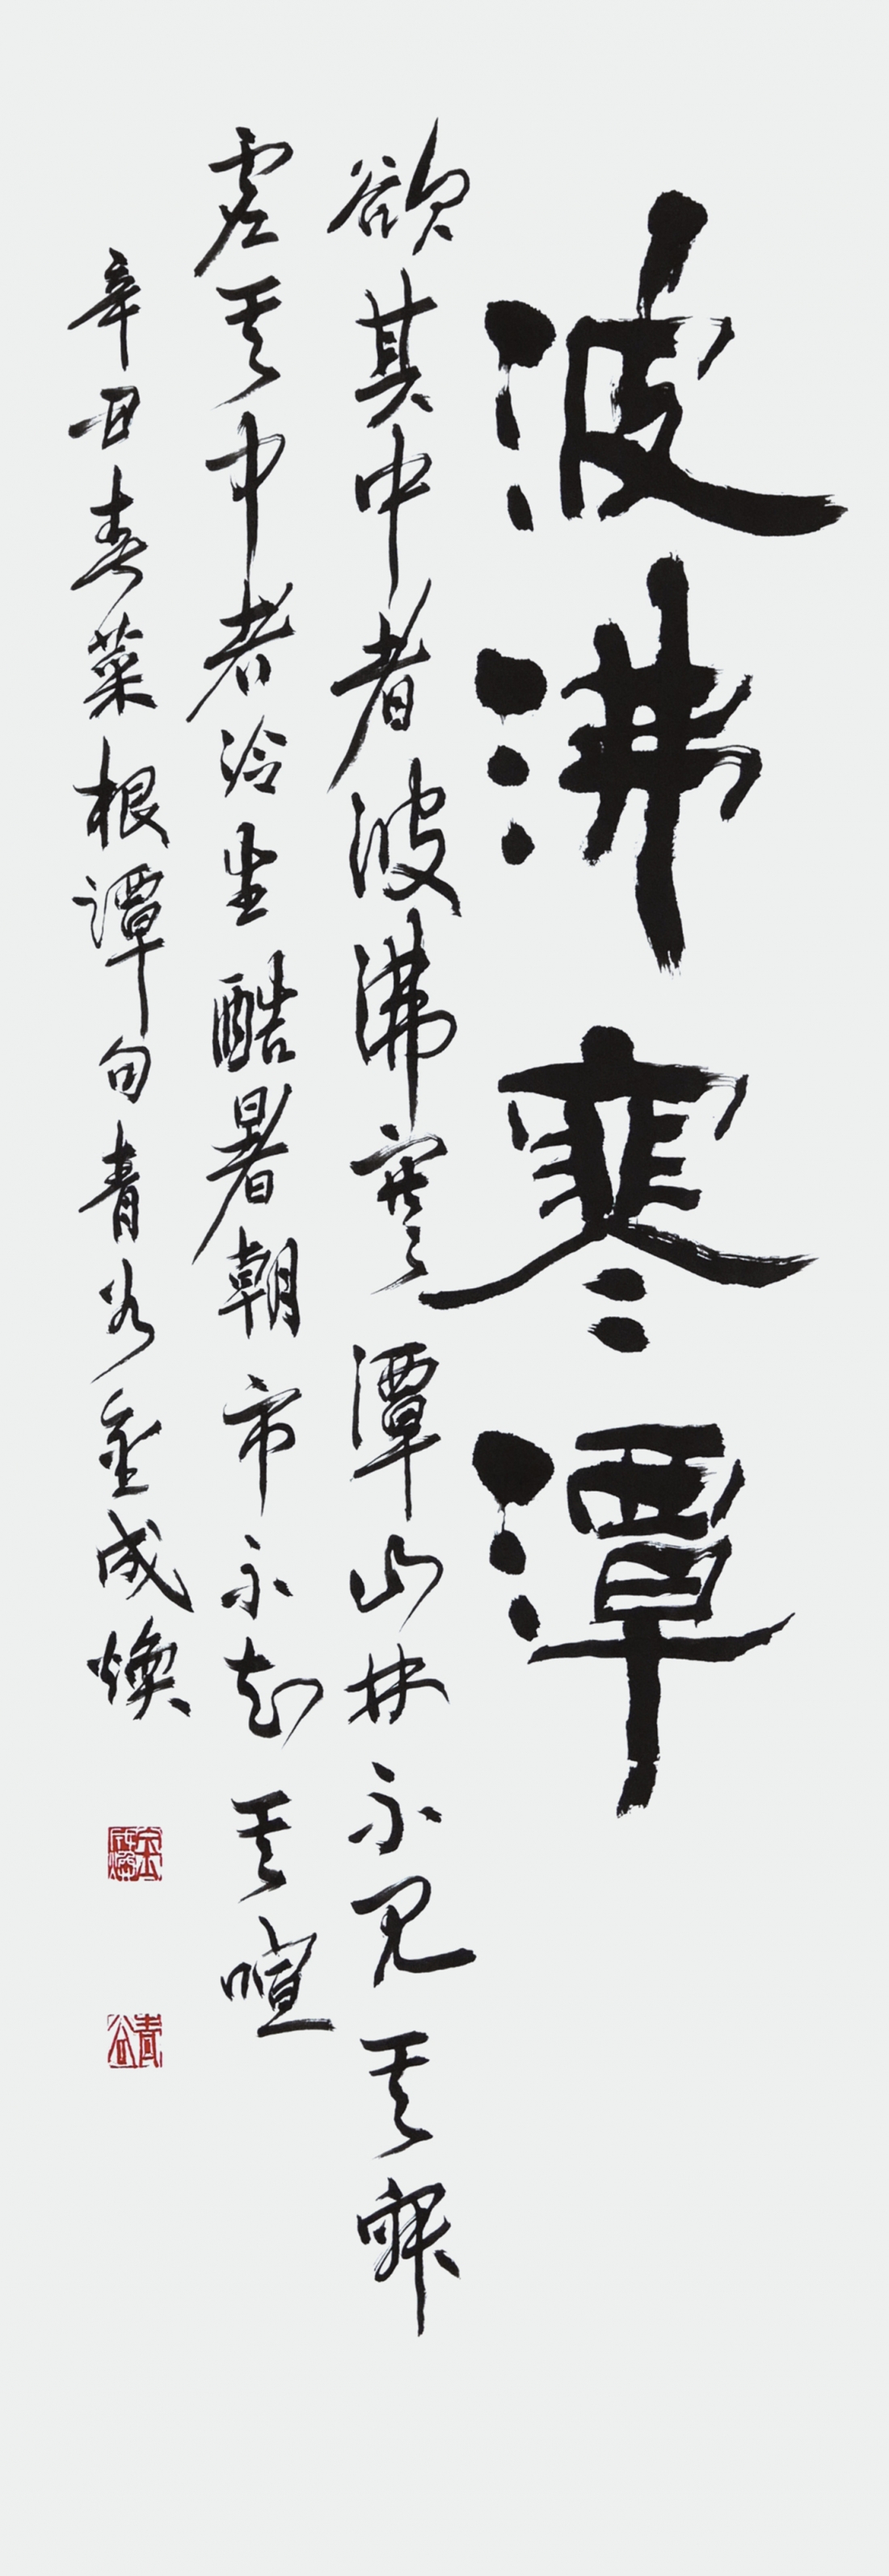 波沸寒潭
欲其中者波沸寒潭山林不見其寂
虛其中者冷生酷暑朝市不知其喧
辛丑春菜根譚句青谷金成煥
金成煥
青谷